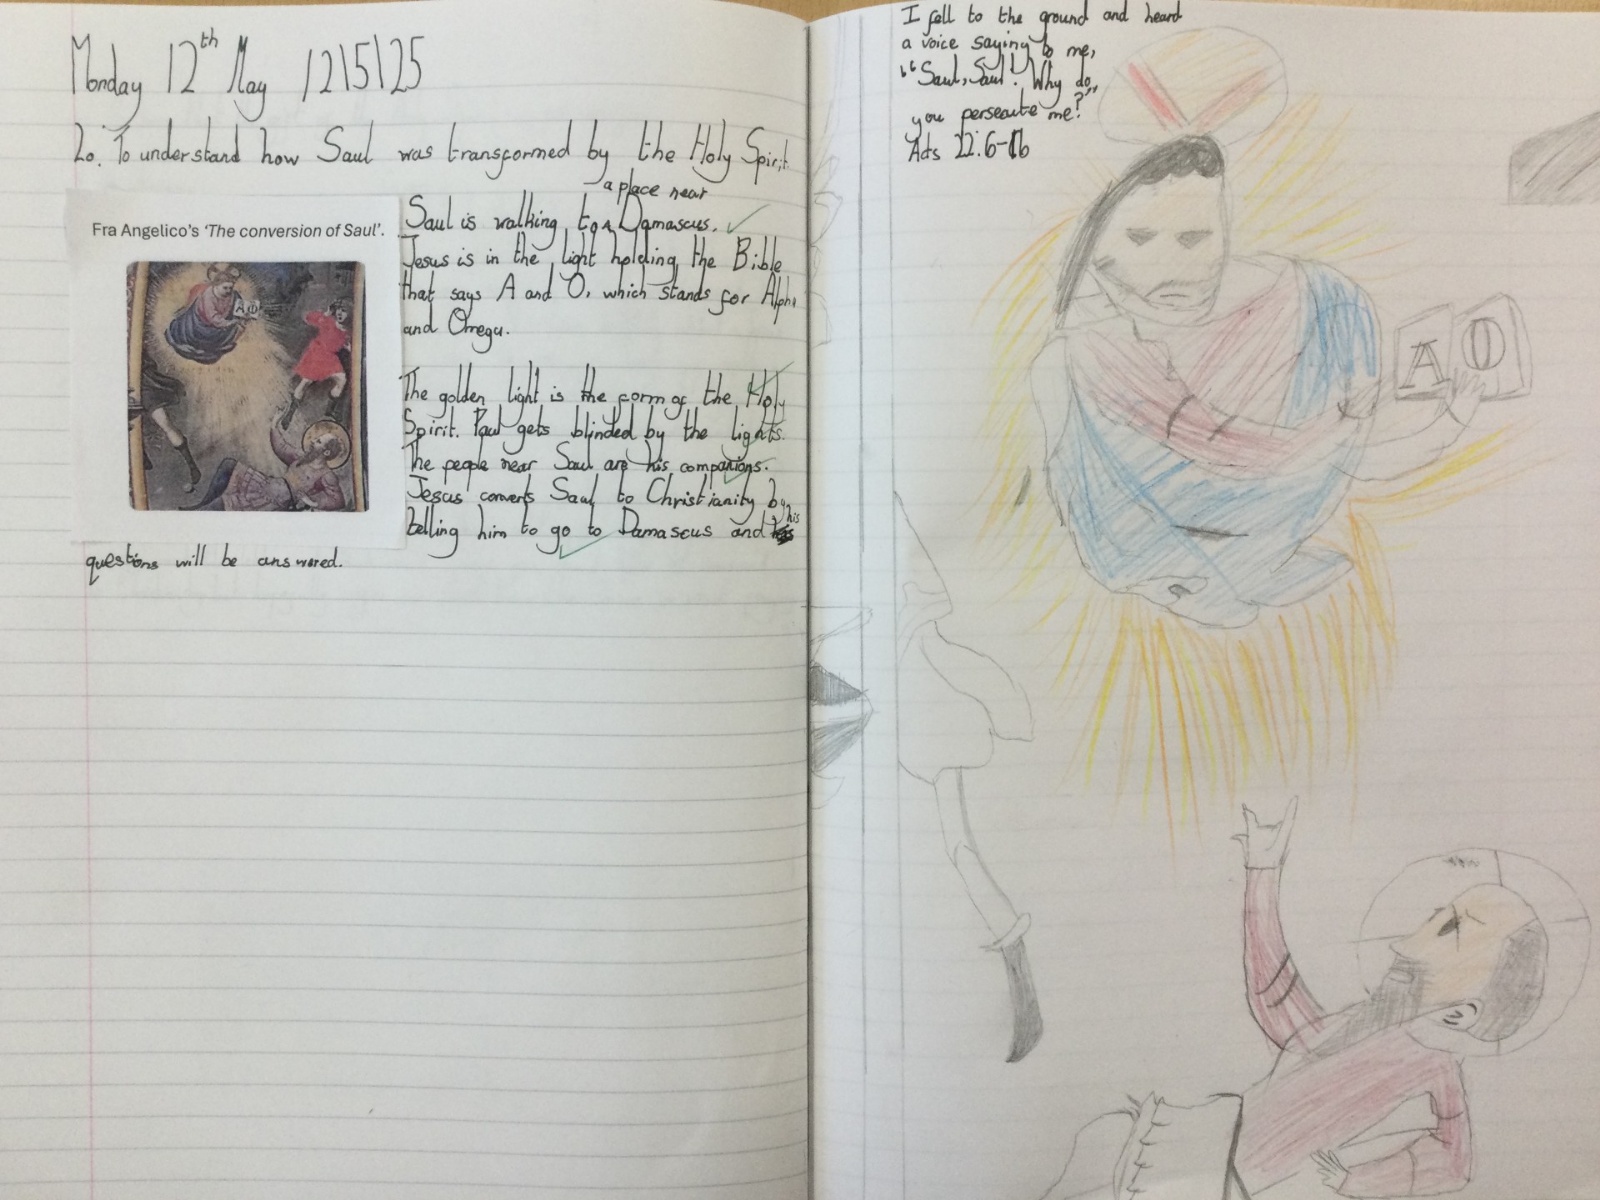 Monday 12th May 12|5|25
Lo: To understand how Saul was transformed by the Holy Spirit.
Fra Angelico's 'The conversion of Saul'.
A O
a place near
Saul is walking to ^ Damascus.
Jesus is in the light holding the Bible
that says A and O, which stands for Alpha
and Omega.
The golden light is the form of the Holy
Spirit. Paul gets blinded by the lights.
The people near Saul are his companions.
Jesus converts Saul to Christianity by
telling him to go to Damascus and his
questions will be answered.
I fell to the ground and heard
a voice saying to me,
"Saul, Saul! Why do
you persecute me?"
Acts 22:6-16
A O